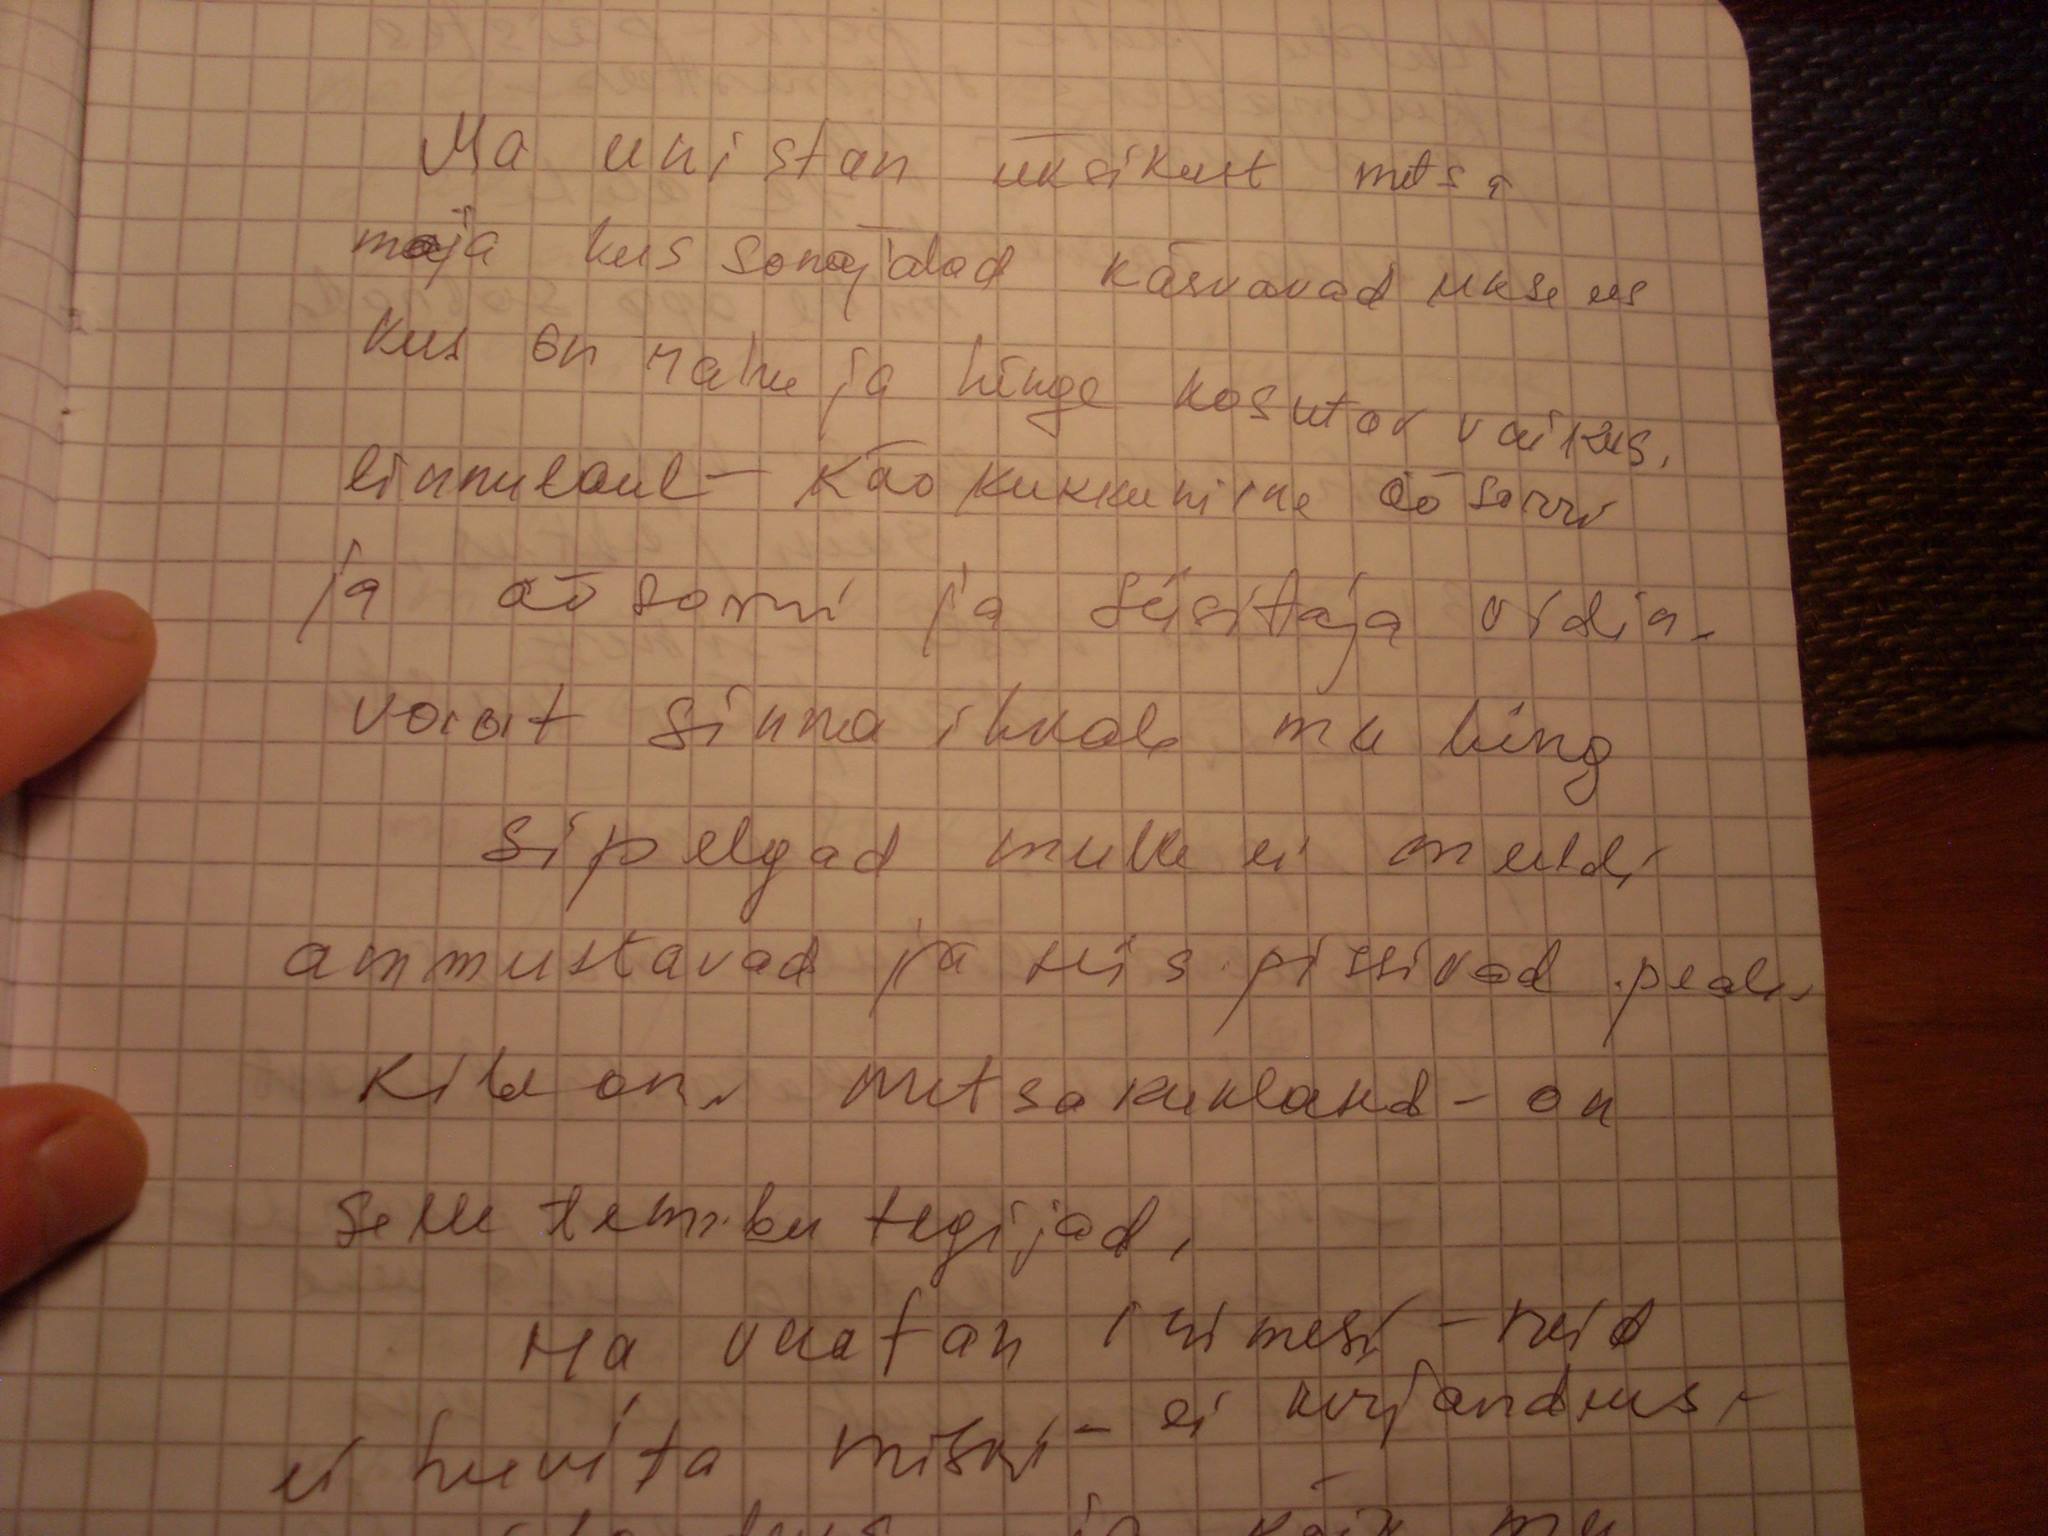 Ma unistan üksikust metsa
maja kus sonajalad kasvavad ukse ees
kus on rahu ja hinge kosutav vaikus,
linnulaul – käo kukkumine öösorri
ja öösorri ja süsitaja vidin.
vaiat sinna ihkab mu hing
Sipelgad mulle ei meeldi
ammustavad ja siis pissivad peale
Kibe on. metsakuklased – on
selle tembu tegijad,
Ma vaatan inimesi – neid
ei huvita miski – ei kirjandus,
ja kõik mu